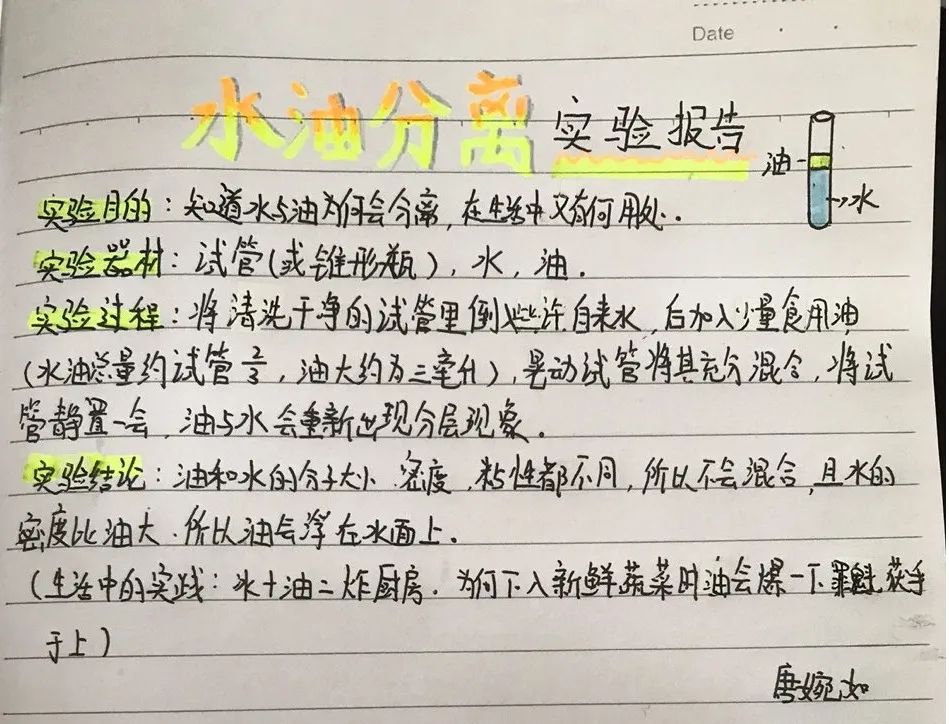 Date
水油分离 实验报告
油
水
实验目的：知道水与油为何会分离，在生活中又有何用处．
实验器材：试管(或锥形瓶)，水，油．
实验过程：将清洗干净的试管里倒些许自来水，后加入少量食用油
(水油总量约试管2/3，油大约为三毫升)，晃动试管将其充分混合，将试
管静置一会，油与水会重新出现分层现象．
实验结论：油和水的分子大小 密度，粘性都不同，所以不会混合，且水的
密度比油大．所以油会浮在水面上．
(生活中的实践：水+油=炸厨房．为何下入新鲜蔬菜时油会爆一下 罪魁
于上)
唐婉如